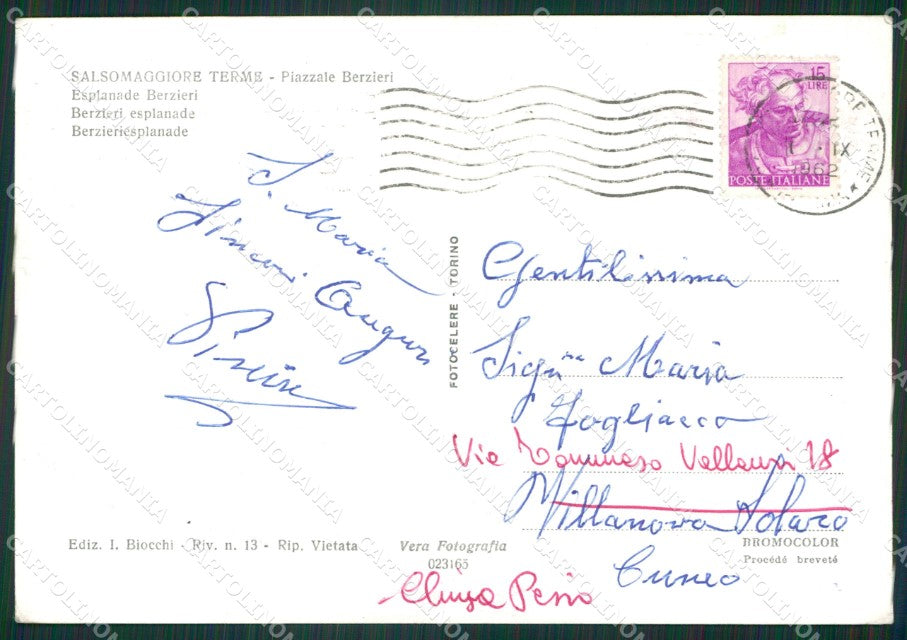 SALSOMAGGIORE TERME - Piazzale Berzieri
Esplanade Berzieri
Berzieri esplanade
Berzieriesplanade
15
LIRE
POSTE ITALIANE
IX
1962
S. Maria
Sinceri Auguri
FOTOCELERE - TORINO
Gentilissima
Sig.na Maria
Fogliacco
Via Tommaso Vallauri 18
Villanova Solaro
Cuneo
Chiusa Pesio
BROMOCOLOR
Procédé breveté
Ediz. I. Biocchi - Riv. n. 13 - Rip. Vietata
Vera Fotografia
023165
CARTOLINOMANIA